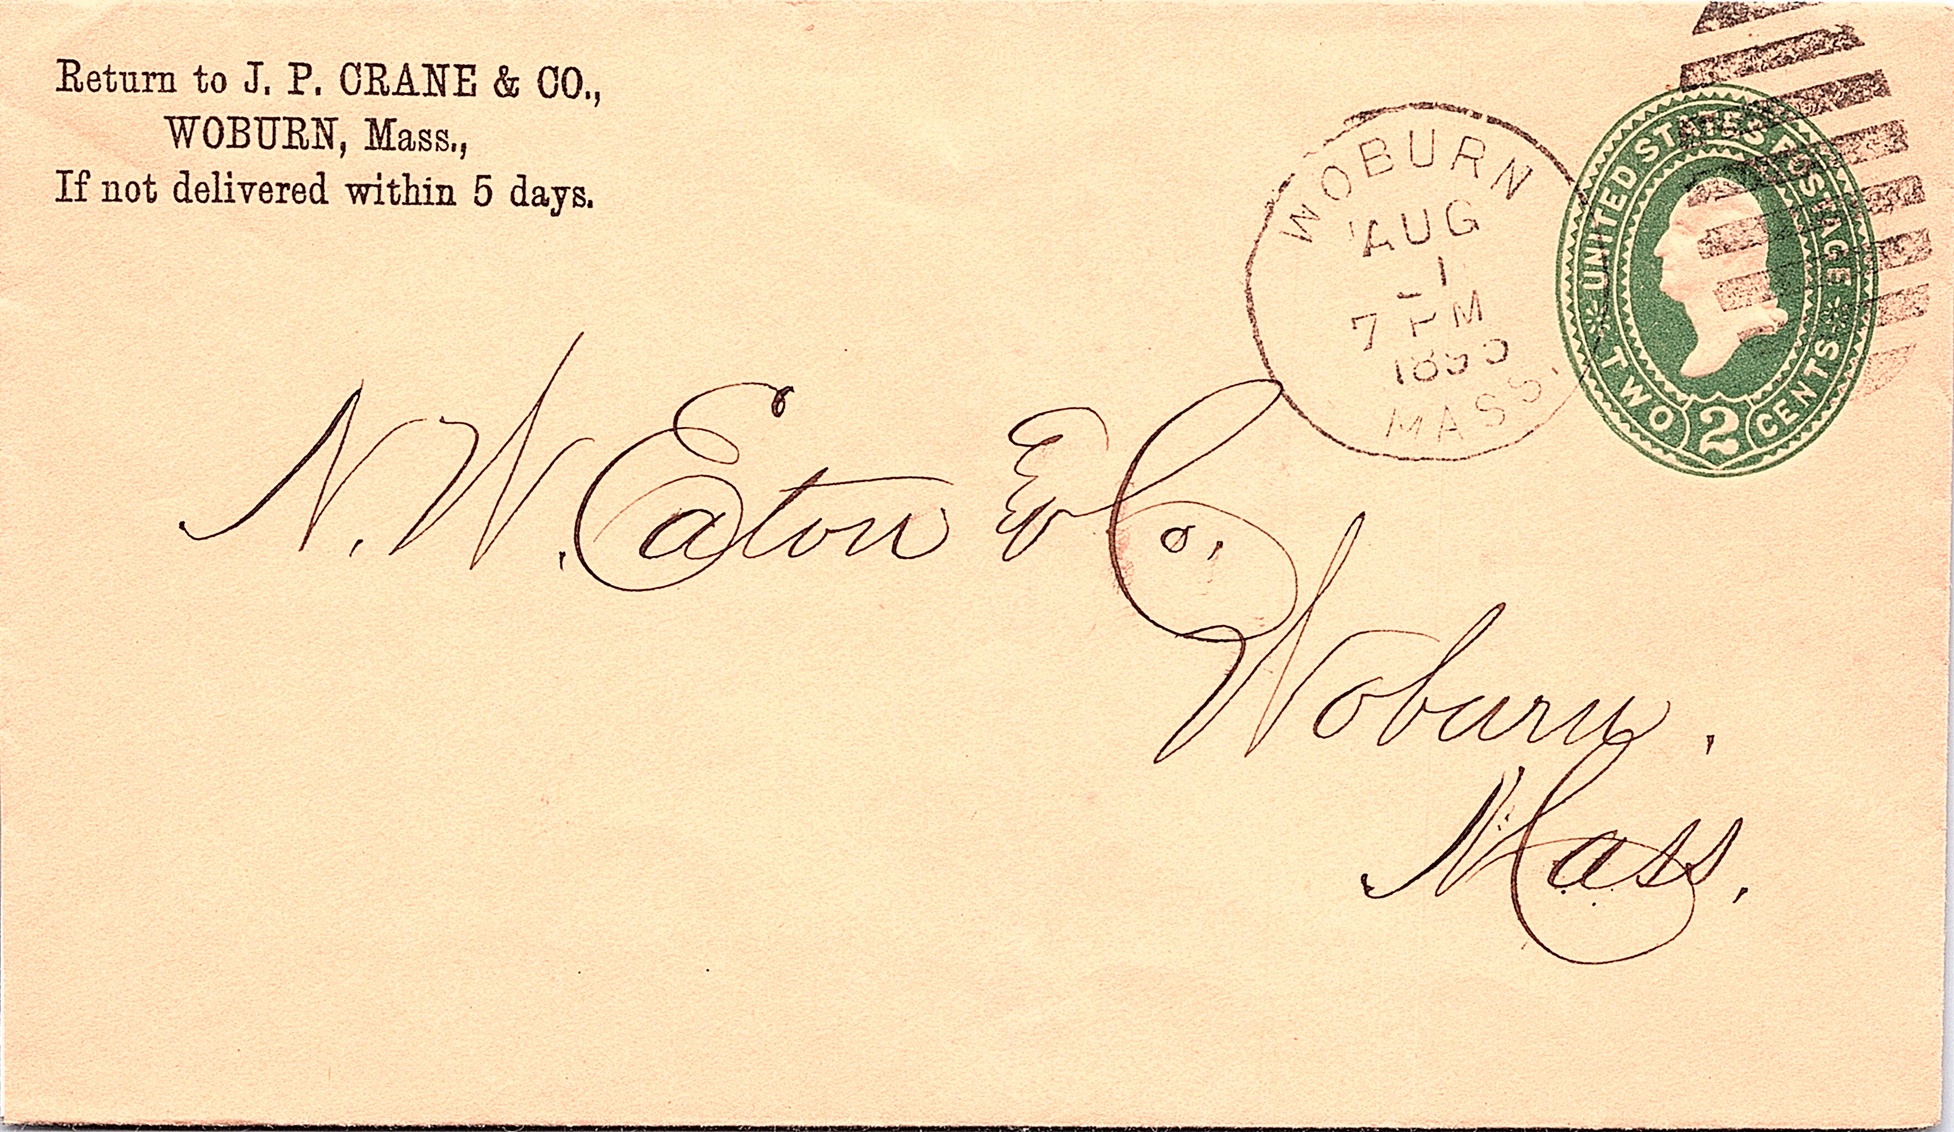 Return to J. P. CRANE & CO.,
WOBURN, Mass.,
If not delivered within 5 days.
WOBURN
AUG
1
7 PM
MASS.
UNITED STATES POSTAGE
TWO 2 CENTS
N. W. Eaton & Co.
Woburn,
Mass.